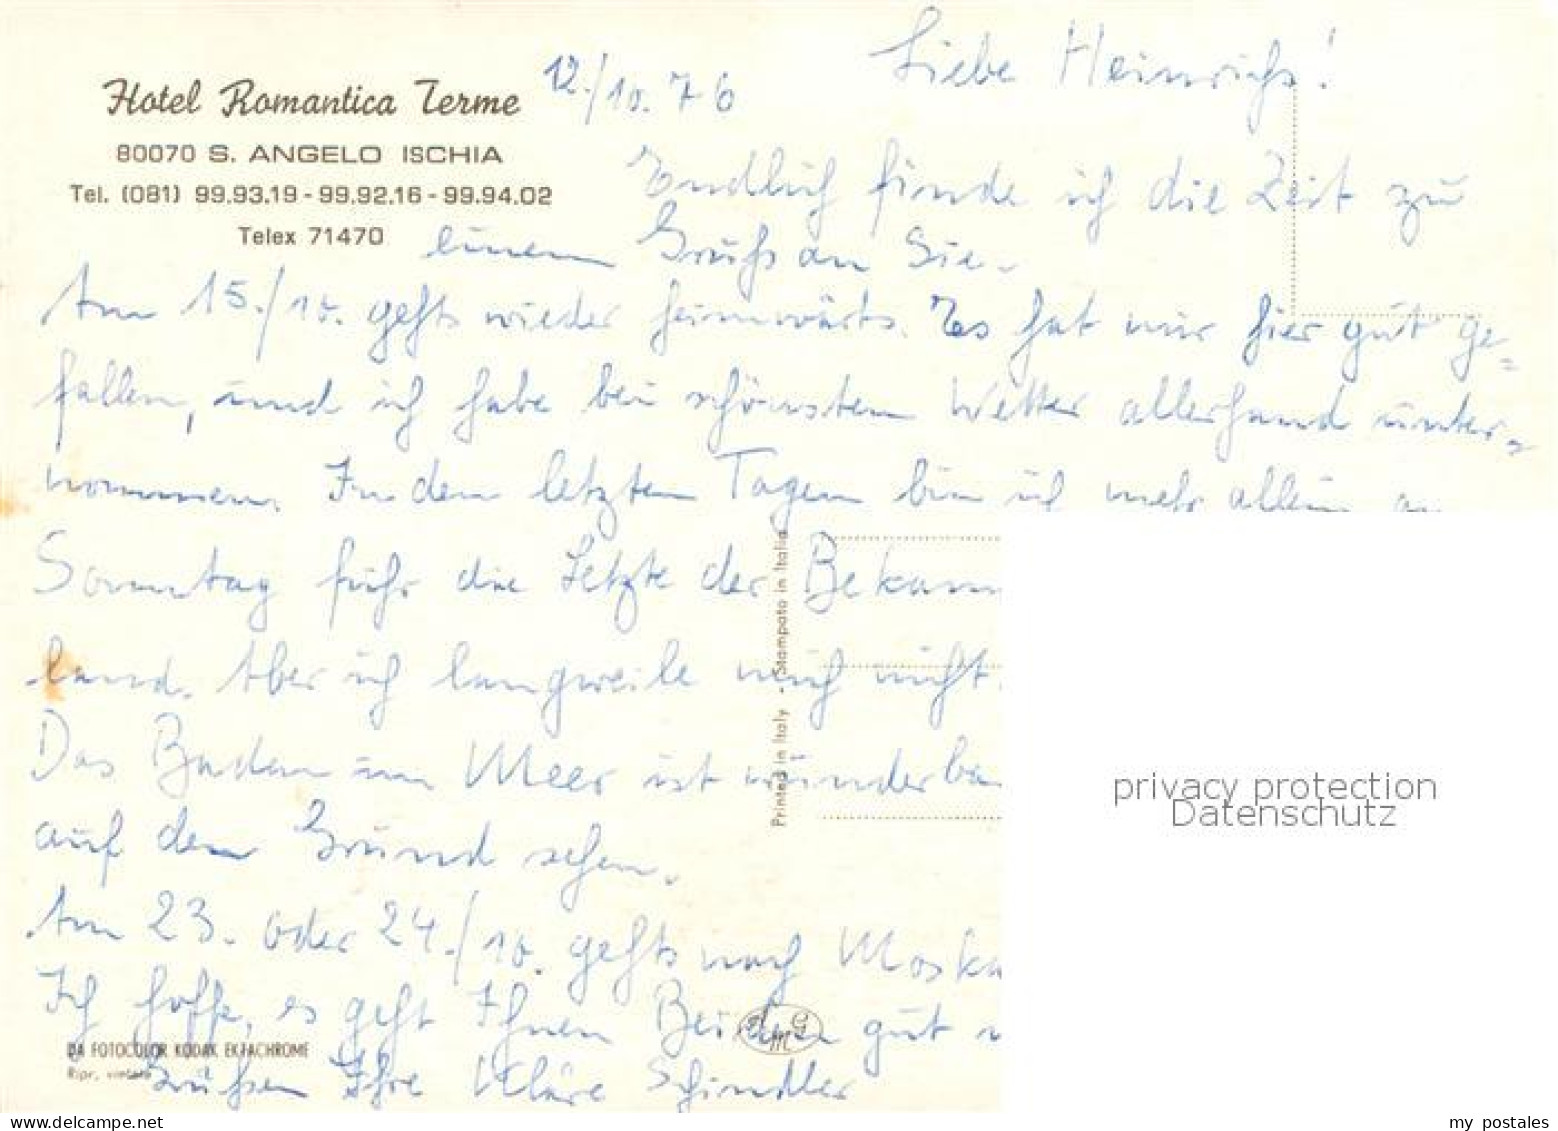 Hotel Romantica Terme
80070 S. ANGELO ISCHIA
Tel. (081) 99.93.19 - 99.92.16 - 99.94.02
Telex 71470
12./10. 76
Liebe Heinrichs!
Endlich finde ich die Zeit zu
einem Gruß an Sie.
Am 15./10. gehts wieder heimwärts. Es hat mir hier gut ge=
fallen, und ich habe bei schönstem Wetter allerhand unter=
nommen. In den letzten Tagen bin ich mehr allein
Sonntag fuhr die Letzte der Bekann
land. Aber ich langweile mich nicht.
Das Baden im Meer ist wunderba
auf den Grund sehen.
Am 23. oder 24./10. gehts nach Moska
Ich hoffe, es geht Ihnen Beiden gut
Grüßen Ihre Kläre Schindler
Printed in Italy - Stampato in Italia
DA FOTOCOLOR KODAK EKTACHROME
Ripr. vietata
privacy protection
Datenschutz
www.delcampe.net
my_postales